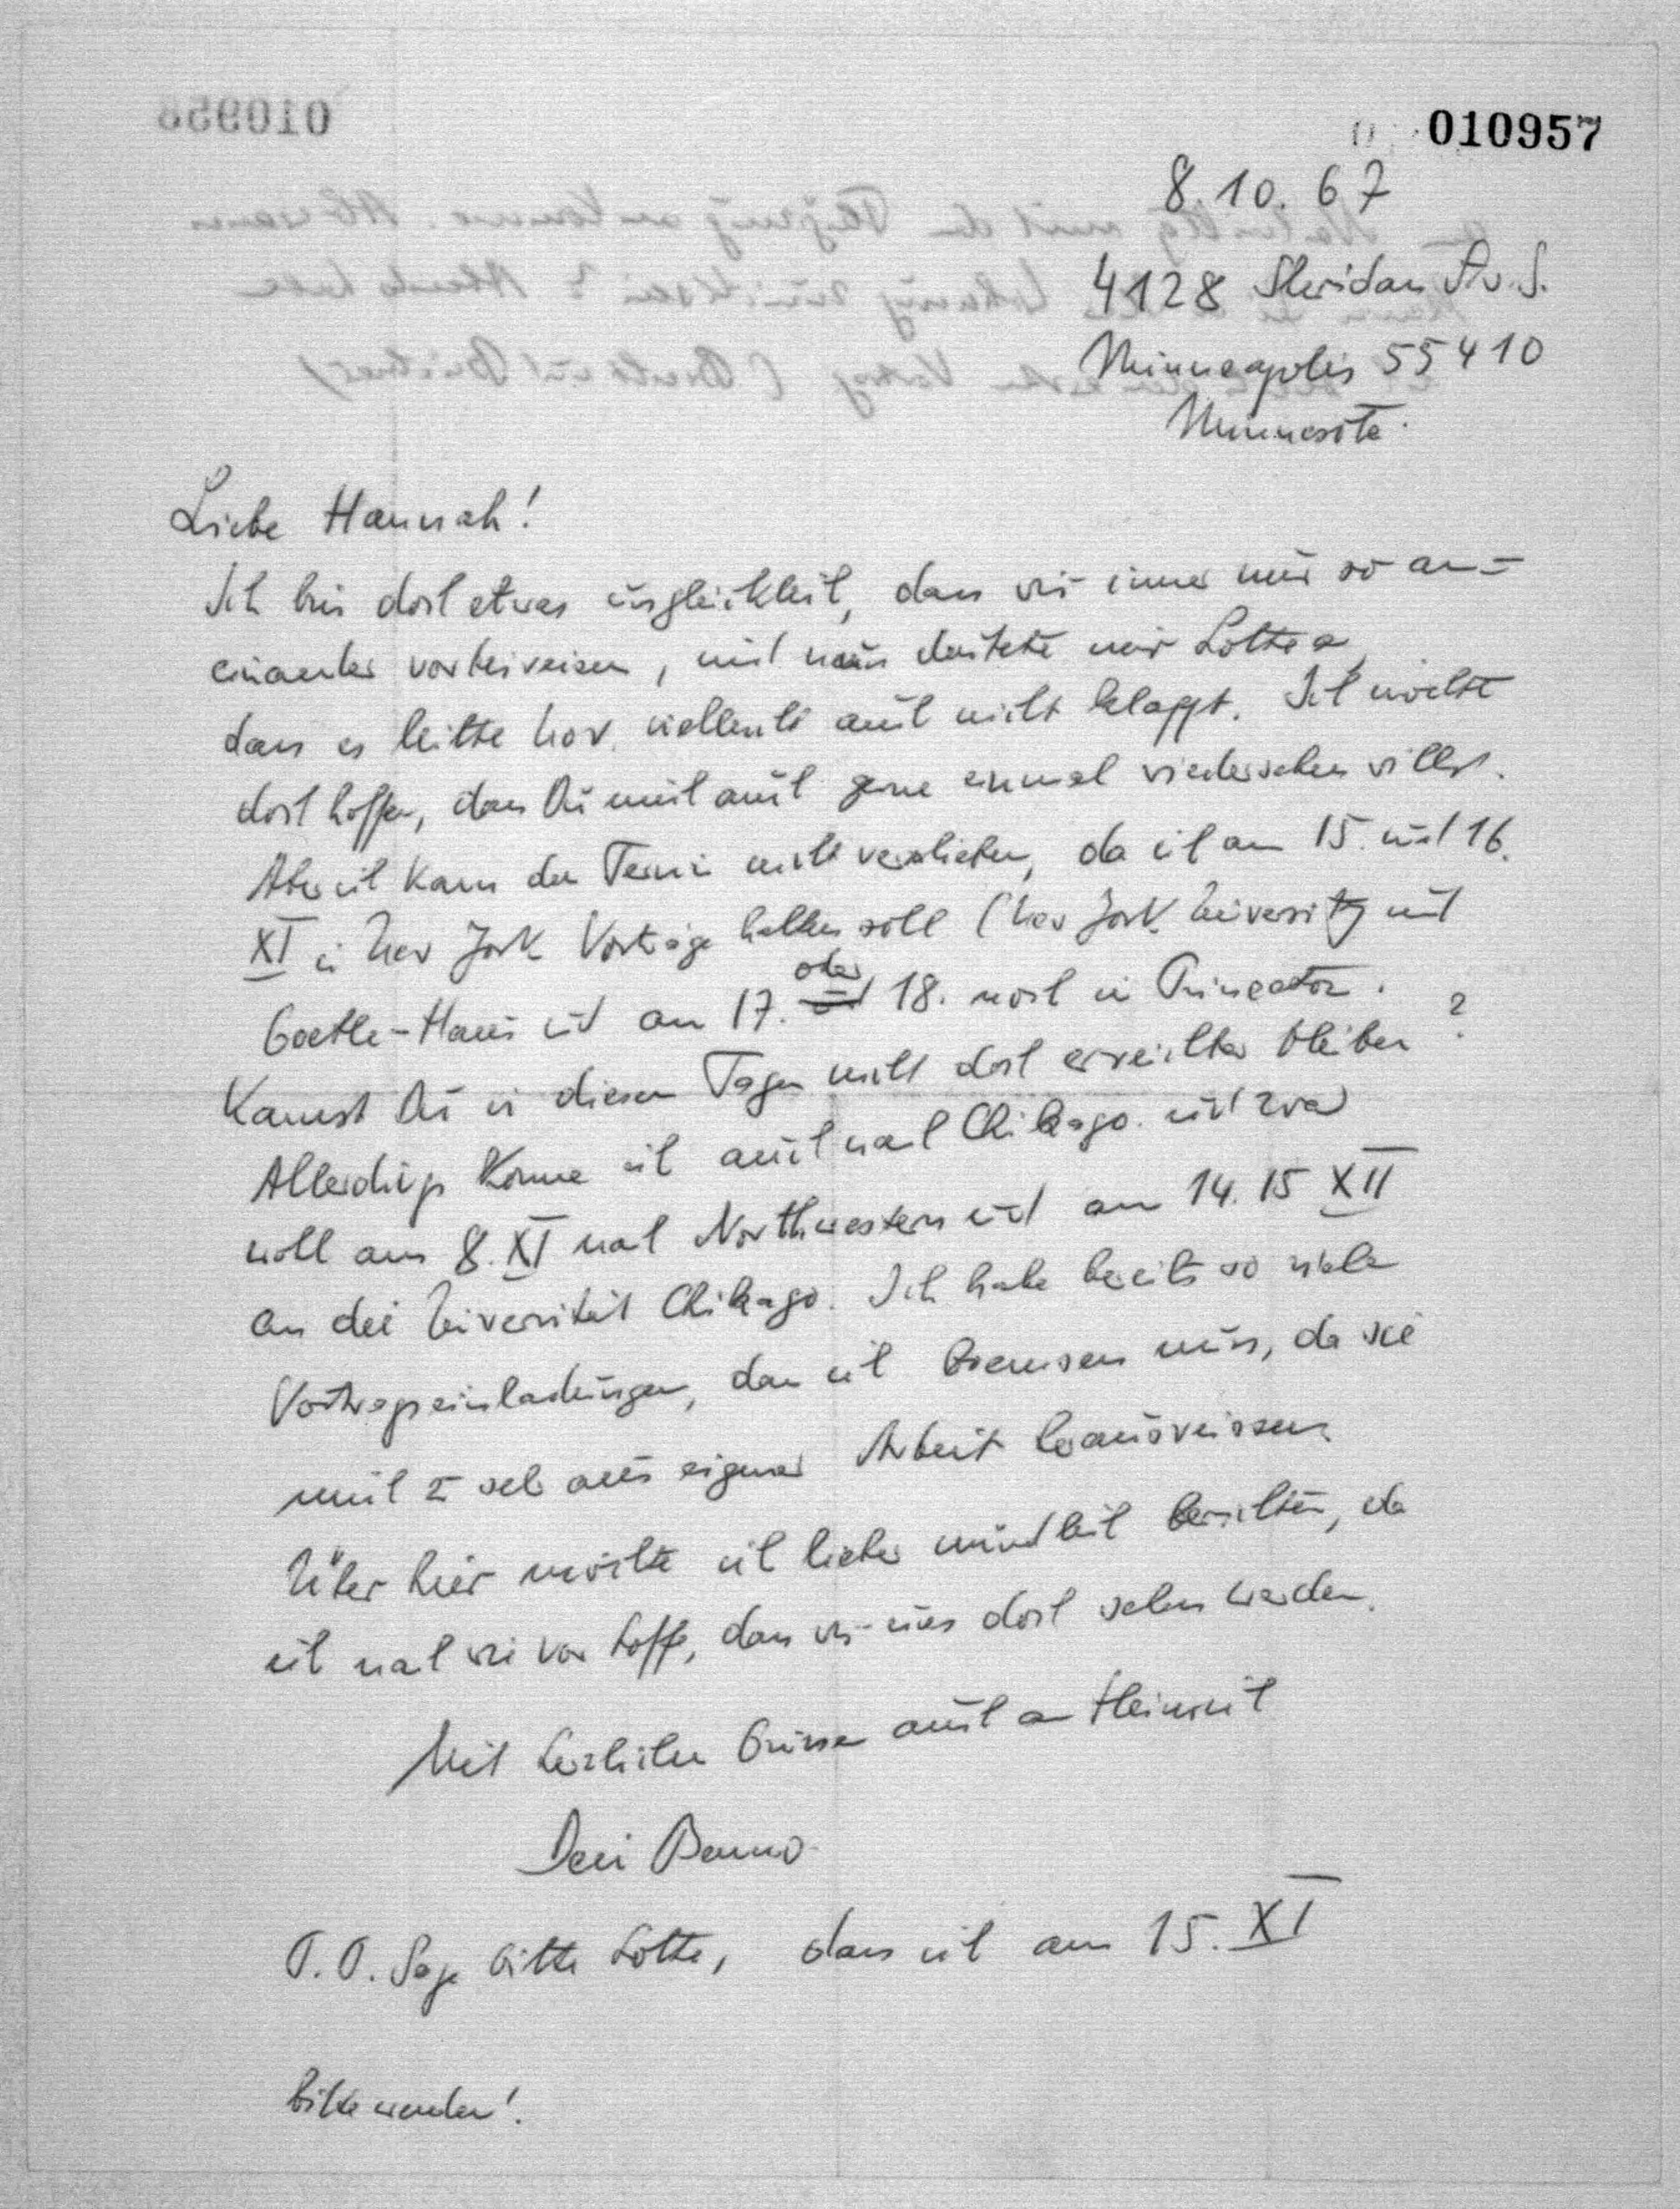 010957
8.10.67
4128 Sheridan Av. S.
Minneapolis 55410
Minnesota.
Liebe Hannah!
Ich bin doch etwas unglücklich, dass wir immer nur so an-
einander vorbeireisen, und nun deutete mir Lotte an
dass es Mitte Nov. vielleicht auch nicht klappt. Ich möchte
doch hoffen, dass Du mich auch gerne einmal wiedersehen willst.
Aber ich kann den Termin nicht verschieben, da ich am 15. und 16.
XI in New York Vorträge halten soll (New York University und
Goethe-Haus und am 17. oder 18. noch in Princeton.
Kannst Du in diesen Tagen nicht doch erreichbar bleiben?
Allerdings komme ich auch nach Chikago. und zwar
wohl am 8. XI nach Northwestern und am 14. 15 XII
an die Universität Chikago. Ich habe bereits so viele
Vortragseinladungen, dass ich bremsen muss, da sie
mich zu sehr aus eigener Arbeit herausreissen.
Über hier möchte ich lieber mündlich berichten, da
ich nach wie vor hoffe, dass wir uns doch sehen werden.
Mit herzlichen Grüssen auch an Heinrich
Dein Benno
P.S. Sage bitte Lotte, dass ich am 15. XI
bitte wenden!